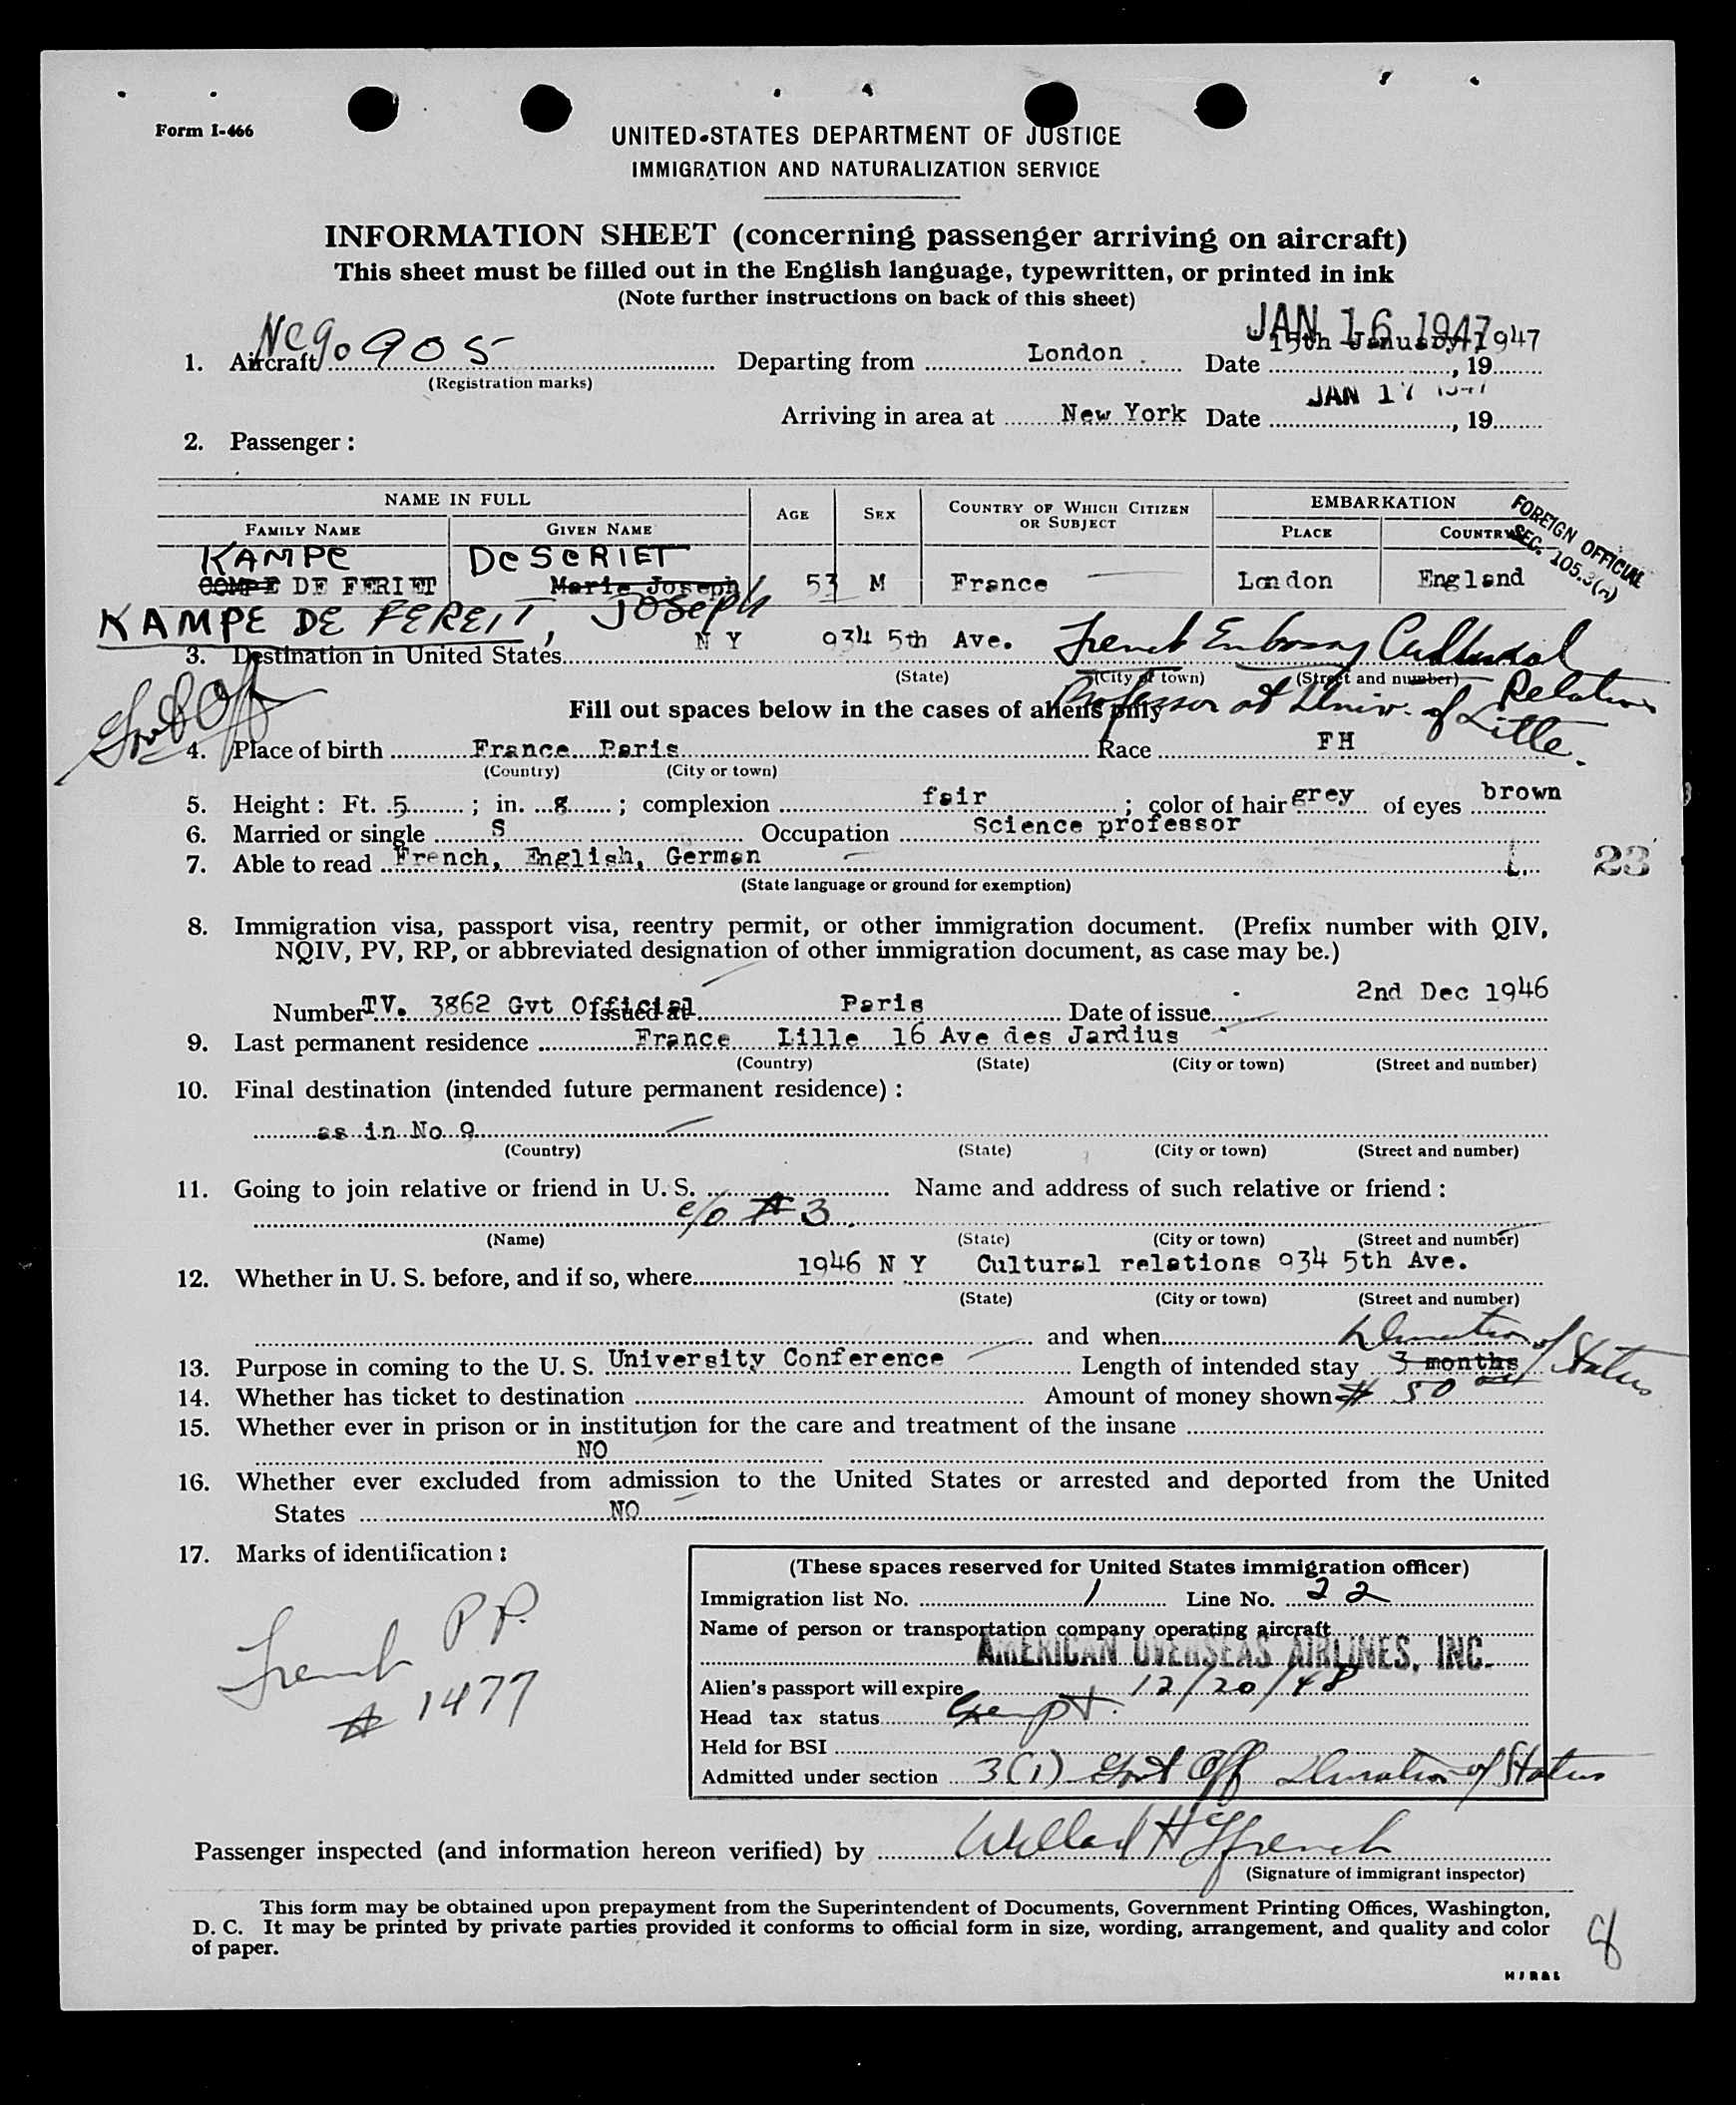 Form I-466
UNITED STATES DEPARTMENT OF JUSTICE
IMMIGRATION AND NATURALIZATION SERVICE
INFORMATION SHEET (concerning passenger arriving on aircraft)
This sheet must be filled out in the English language, typewritten, or printed in ink
(Note further instructions on back of this sheet)
JAN 16 1947
1. Aircraft NC90905 Departing from London Date 15th January 1947, 19
(Registration marks)
JAN 17 1947
Arriving in area at New York Date , 19
2. Passenger :
NAME IN FULL AGE SEX COUNTRY OF WHICH CITIZEN OR SUBJECT EMBARKATION
FAMILY NAME GIVEN NAME PLACE COUNTRY
FOREIGN OFFICIAL
SEC. 105.3(a)
KAMPE DeSeRIET
COMPE DE FERIET Marie Joseph 53 M France London England
KAMPE DE FEREIT, JOSEPH
3. Destination in United States N Y 934 5th Ave. French Embassy Cultural Relations
(State) (City or town) (Street and number)
Professor at Univ. of Litle.
Govt Off
Fill out spaces below in the cases of aliens only
4. Place of birth France Paris Race FH
(Country) (City or town)
5. Height : Ft. 5 ; in. 8 ; complexion fair ; color of hair grey of eyes brown
6. Married or single S Occupation Science professor
7. Able to read French, English, German
(State language or ground for exemption)
23
8. Immigration visa, passport visa, reentry permit, or other immigration document. (Prefix number with QIV,
NQIV, PV, RP, or abbreviated designation of other immigration document, as case may be.)
Number TV. 3862 Gvt Official Issued at Paris Date of issue 2nd Dec 1946
9. Last permanent residence France Lille 16 Ave des Jardius
(Country) (State) (City or town) (Street and number)
10. Final destination (intended future permanent residence) :
as in No 9
(Country) (State) (City or town) (Street and number)
11. Going to join relative or friend in U. S. Name and address of such relative or friend :
c/o # 3
(Name) (State) (City or town) (Street and number)
12. Whether in U. S. before, and if so, where 1946 N Y Cultural relations 934 5th Ave.
(State) (City or town) (Street and number)
and when
Duration of Status
13. Purpose in coming to the U. S. University Conference Length of intended stay 3 months
14. Whether has ticket to destination Amount of money shown $ 50
15. Whether ever in prison or in institution for the care and treatment of the insane
NO
16. Whether ever excluded from admission to the United States or arrested and deported from the United
States NO
17. Marks of identification :
French P.P.
# 1477
(These spaces reserved for United States immigration officer)
Immigration list No. 1 Line No. 22
Name of person or transportation company operating aircraft
AMERICAN OVERSEAS AIRLINES, INC.
Alien's passport will expire 12/20/48
Head tax status Exempt.
Held for BSI
Admitted under section 3(1) Govt Off Duration of Status
Passenger inspected (and information hereon verified) by Willard H Ffrench
(Signature of immigrant inspector)
This form may be obtained upon prepayment from the Superintendent of Documents, Government Printing Offices, Washington,
D. C. It may be printed by private parties provided it conforms to official form in size, wording, arrangement, and quality and color
of paper.